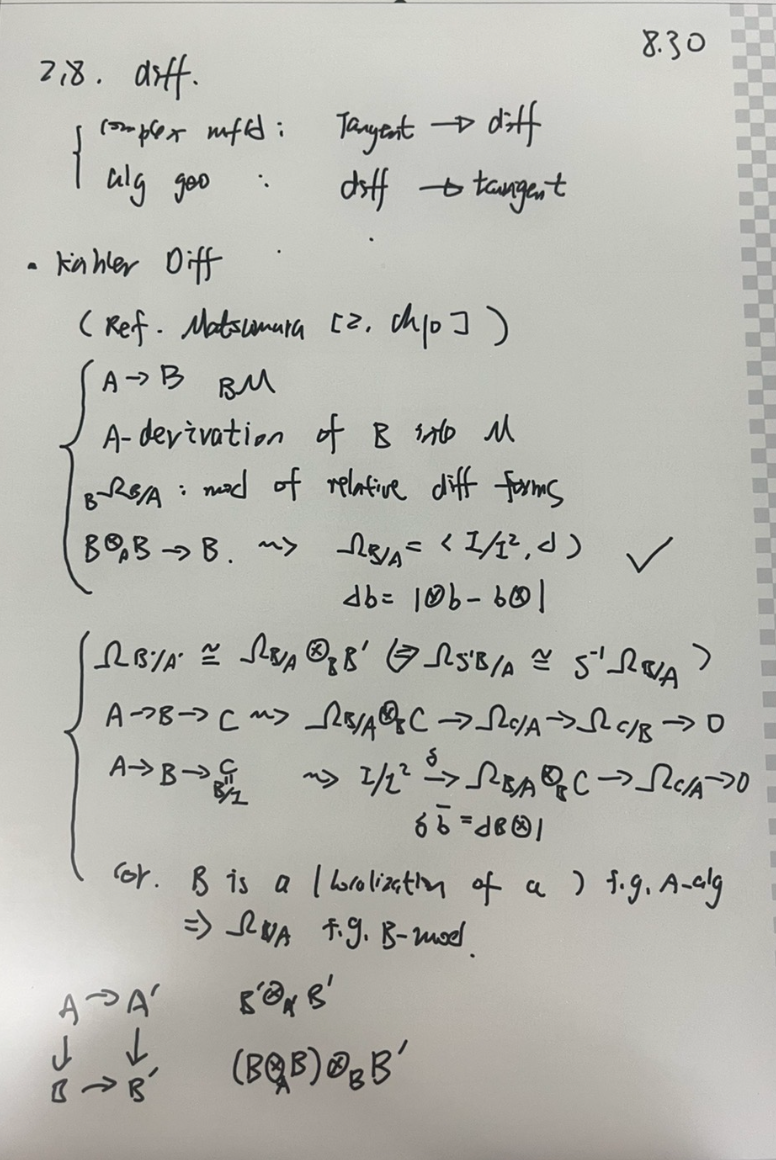 8.30
2.8. diff.
complex mfd: Tangent → diff
alg geo : diff → tangent
• Kahler Diff
(Ref. Matsumura [2, ch10])
A→B BM
A-derivation of B into M
BΩB/A : mod of relative diff forms
B⊗AB → B. ⇝ ΩB/A = <I/I², d) ✓
db = 1⊗b - b⊗1
ΩB'/A' ≅ ΩB/A ⊗B B' (⇒ ΩS⁻¹B/A ≅ S⁻¹ΩB/A)
A→B→C ⇝ ΩB/A⊗BC → ΩC/A → ΩC/B → 0
A→B→C=B/I ⇝ I/I² –δ→ ΩB/A⊗BC → ΩC/A → 0
δb̄ = dB⊗1
Cor. B is a (localization of a) f.g. A-alg
⇒ ΩB/A f.g. B-mod.
A → A' B'⊗A'B'
↓ ↓
B → B' (B⊗AB)⊗BB'